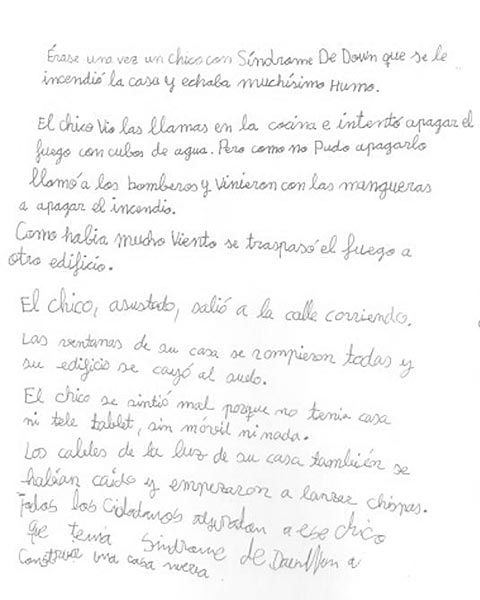 Érase una vez un chico con Síndrome De Down que se le
incendió la casa y echaba muchísimo Humo.
El chico Vio las llamas en la cocina e intentó apagar el
fuego con cubos de agua. Pero como no Pudo apagarlo
llamó a los bomberos y Vinieron con las mangueras
a apagar el incendio.
Como había mucho Viento se traspasó el fuego a
otro edificio.
El chico, asustado, salió a la calle corriendo.
Las ventanas de su casa se rompieron todas y
su edificio se cayó al suelo.
El chico se sintió mal porque no tenía casa
ni tele tablet, sin móvil ni nada.
Los cables de la luz de su casa también se
habían caído y empezaron a lanzar chispas.
Todos los Ciudadanos ayudan a ese chico
que tenía Síndrome de Down a
Construir una casa nueva